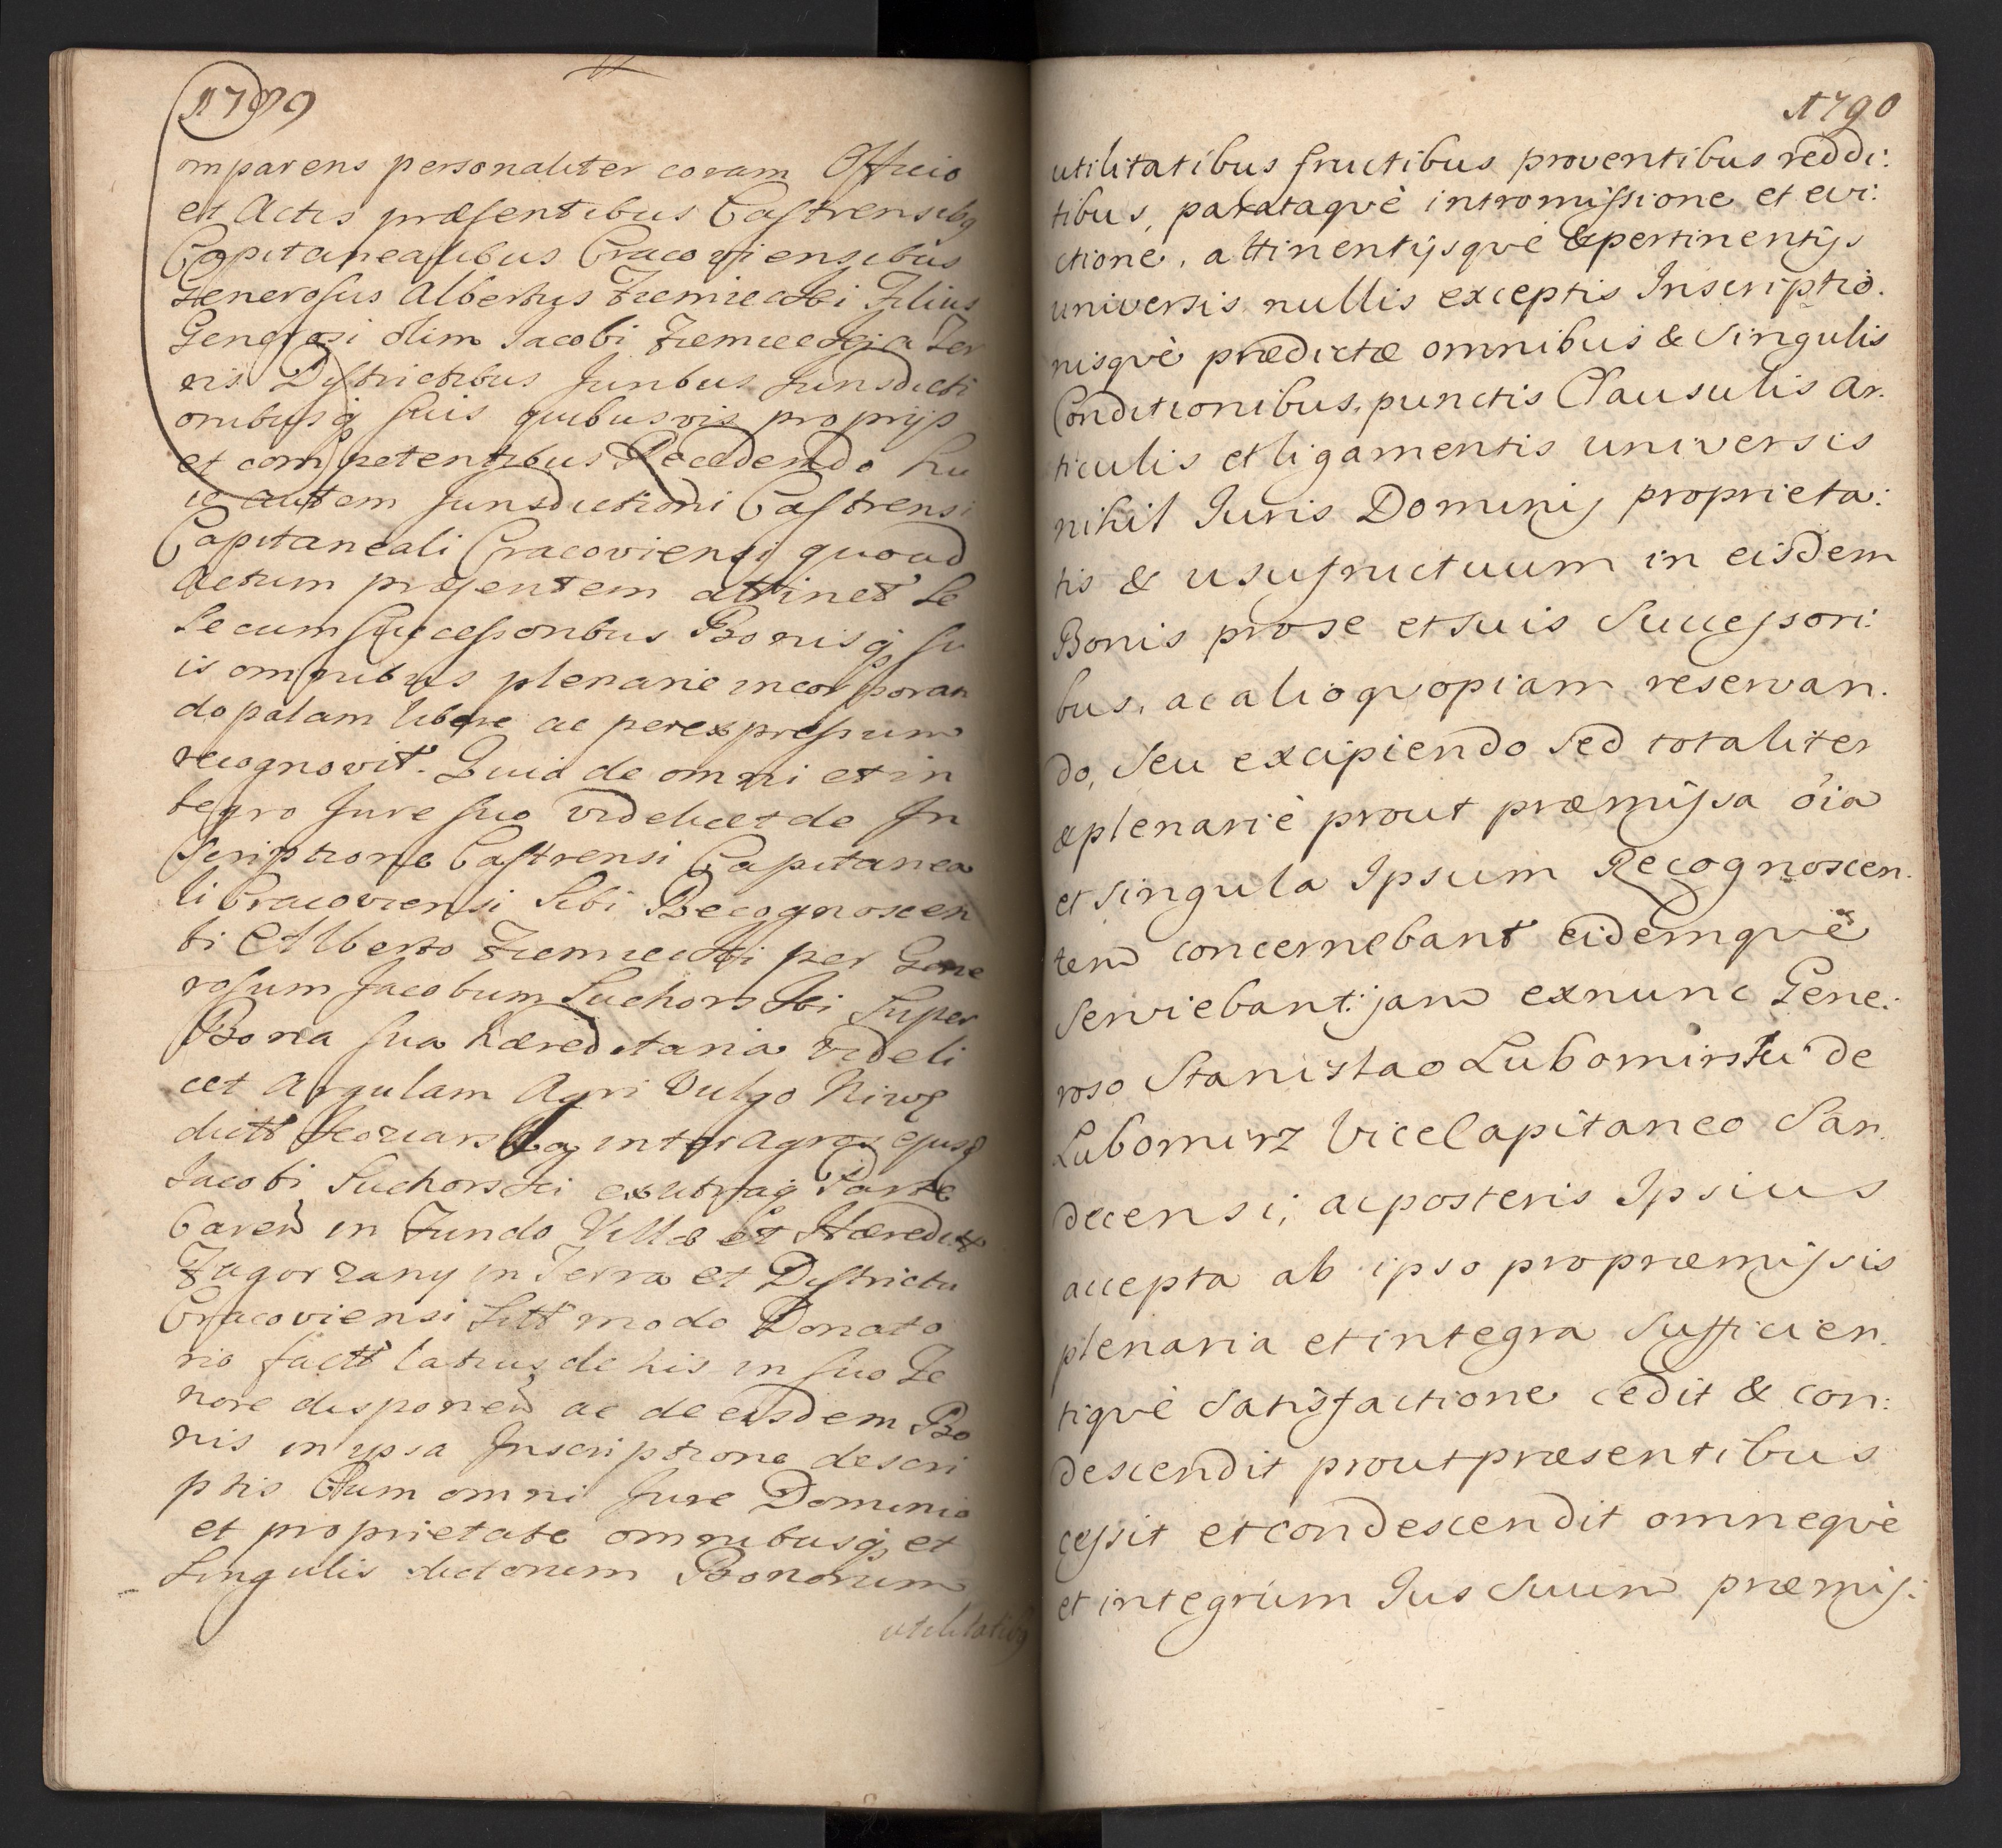 1789
Comparens personaliter coram Officio
et Actis præsentibus Castrensibq
Capitanealibus Cracoviensibus
Generosus Albertus Ziemiecki Filius
Generosi olim Jacobi Ziemiecki a Ter
ris Districtibus Juribus Jurisdicti
onibusq suis quibusvis proprijs
et competentibus Recedendo hu
ic autem Jurisdictioni Castrensi
Capitaneali Cracoviensi quoad
Actum præsentem attinet Se
Secum Successoribus Bonisq su
is omnibus plenarie incorporan
do palam libere ac per expressum
recognovit. Quia de omni et in
tegro Jure suo videlicet de In
scriptione Castrensi Capitanea
li Cracoviensi Sibi Recognoscen
ti Alberto Ziemiecki per Gene
rosum Jacobum Suchorski Super
Bona sua hæreditaria videli
cet Argulam Agri Vulgo Niwę
dictt inter Agros ejusd
Jacobi Suchorski ex utraq Parte
Caren in Fundo Villæ et Hæredit
Zagorzany in Terra et Districtu
Cracoviensi Sitt modo Donato
rio factt latius de his in suo Te
nore disponen ac de eisdem Bo
nis in ipsa Inscriptione descri
ptis Cum omni Jure Dominio
et proprietate omnibusq et
Singulis dictorum Bonorum
utilitatibq
1790
utilitatibus fructibus proventibus reddi:
tibus, parataquè intromissione et evi:
ctione, attinentijsquè & pertinentijs
universis nullis exceptis Inscriptio.
nisquè prædictæ omnibus & Singulis
Conditionibus, punctis Clausulis Ar.
ticulis et ligamentis universis
nihil Iuris Dominij proprieta:
tis & usufructuum in eisdem
Bonis pro se et suis Successori:
bus, ac alio quopiam reservan.
do, Seu excipiendo Sed totaliter
& plenariè prout præmissa oia
et singula Ipsum Recognoscen.
tem concernebant eidemquè
Serviebant: jam exnunc Gene:
roso Stanislao Lubomirski de
Lubomirz ViceCapitaneo San.
decensi, ac posteris Ipsius
accepta ab ipso pro præmissis
plenaria et integra Sufficien.
tiquè Satisfactione cedit & con:
descendit prout præsentibus
cessit et condescendit omnequè
et integrum Ius Suum præmis: